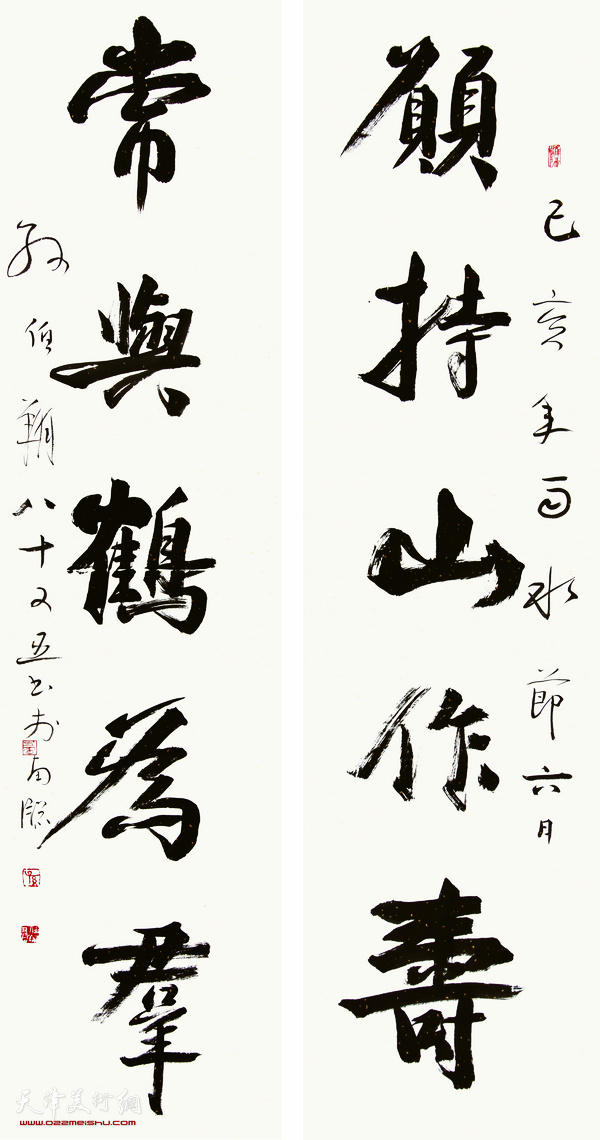 願持山作壽
己亥年雨水節六月
常與鶴為羣
孫伯翔八十又五書於
天津美術網
www.022meishu.com